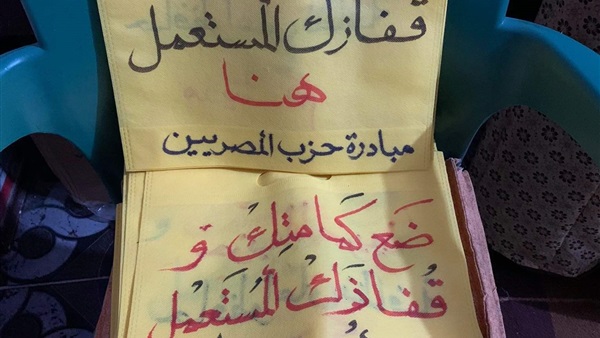 قفازك المستعمل
هنا
مبادرة حزب المصريين
ضع كمامتك و
قفازك المستعمل